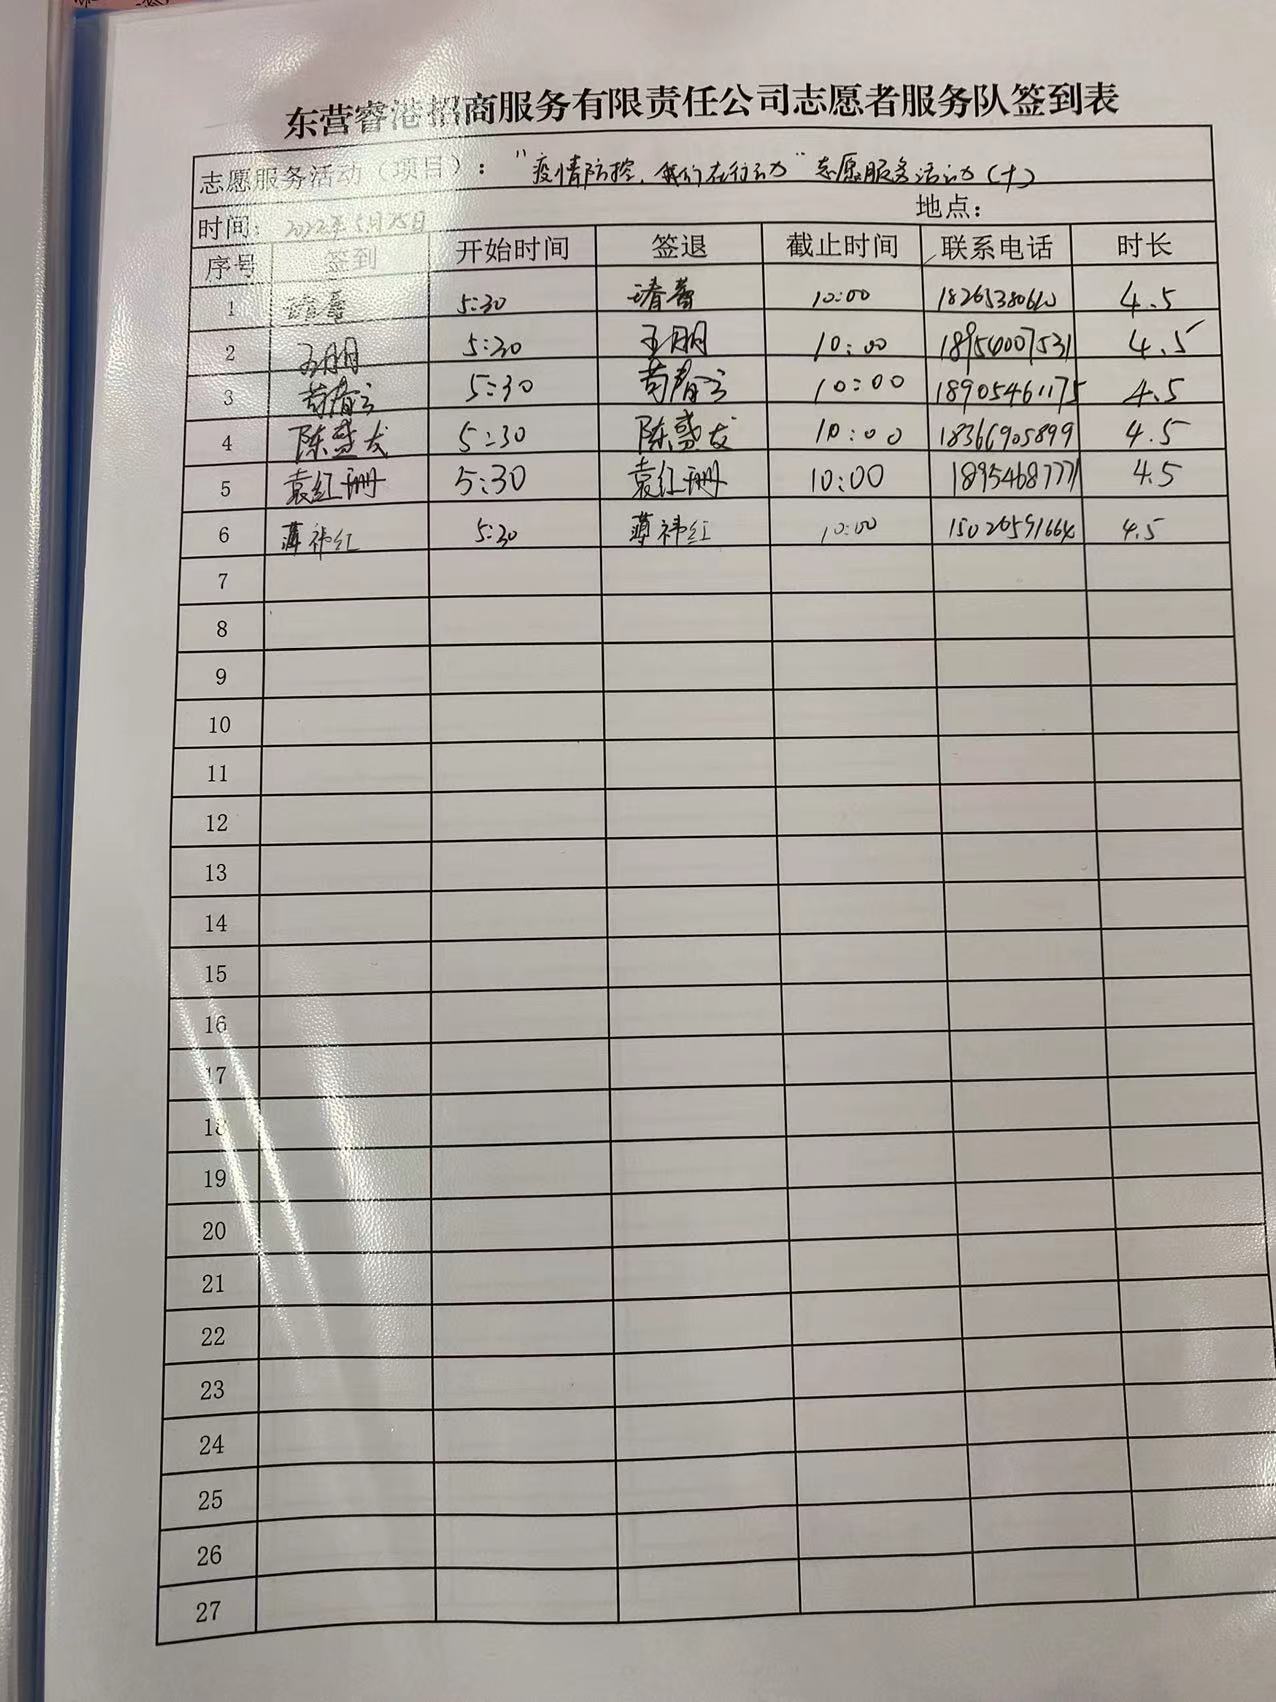 东营睿港招商服务有限责任公司志愿者服务队签到表
志愿服务活动（项目）： "疫情防控，我们在行动"志愿服务活动(十)
时间：2022年5月25日 地点：
序号 签到 开始时间 签退 截止时间 联系电话 时长
1 5:30 10:00 4.5
2 王朋 5:30 王朋 10:00 18954007531 4.5
3 苟春言 5:30 苟春言 10:00 18905461175 4.5
4 陈盛友 5:30 陈盛友 10:00 18366905899 4.5
5 袁红珊 5:30 袁红珊 10:00 18954687771 4.5
6 薄祎红 5:30 薄祎红 10:00 15026591664 4.5
7
8
9
10
11
12
13
14
15
16
17
18
19
20
21
22
23
24
25
26
27